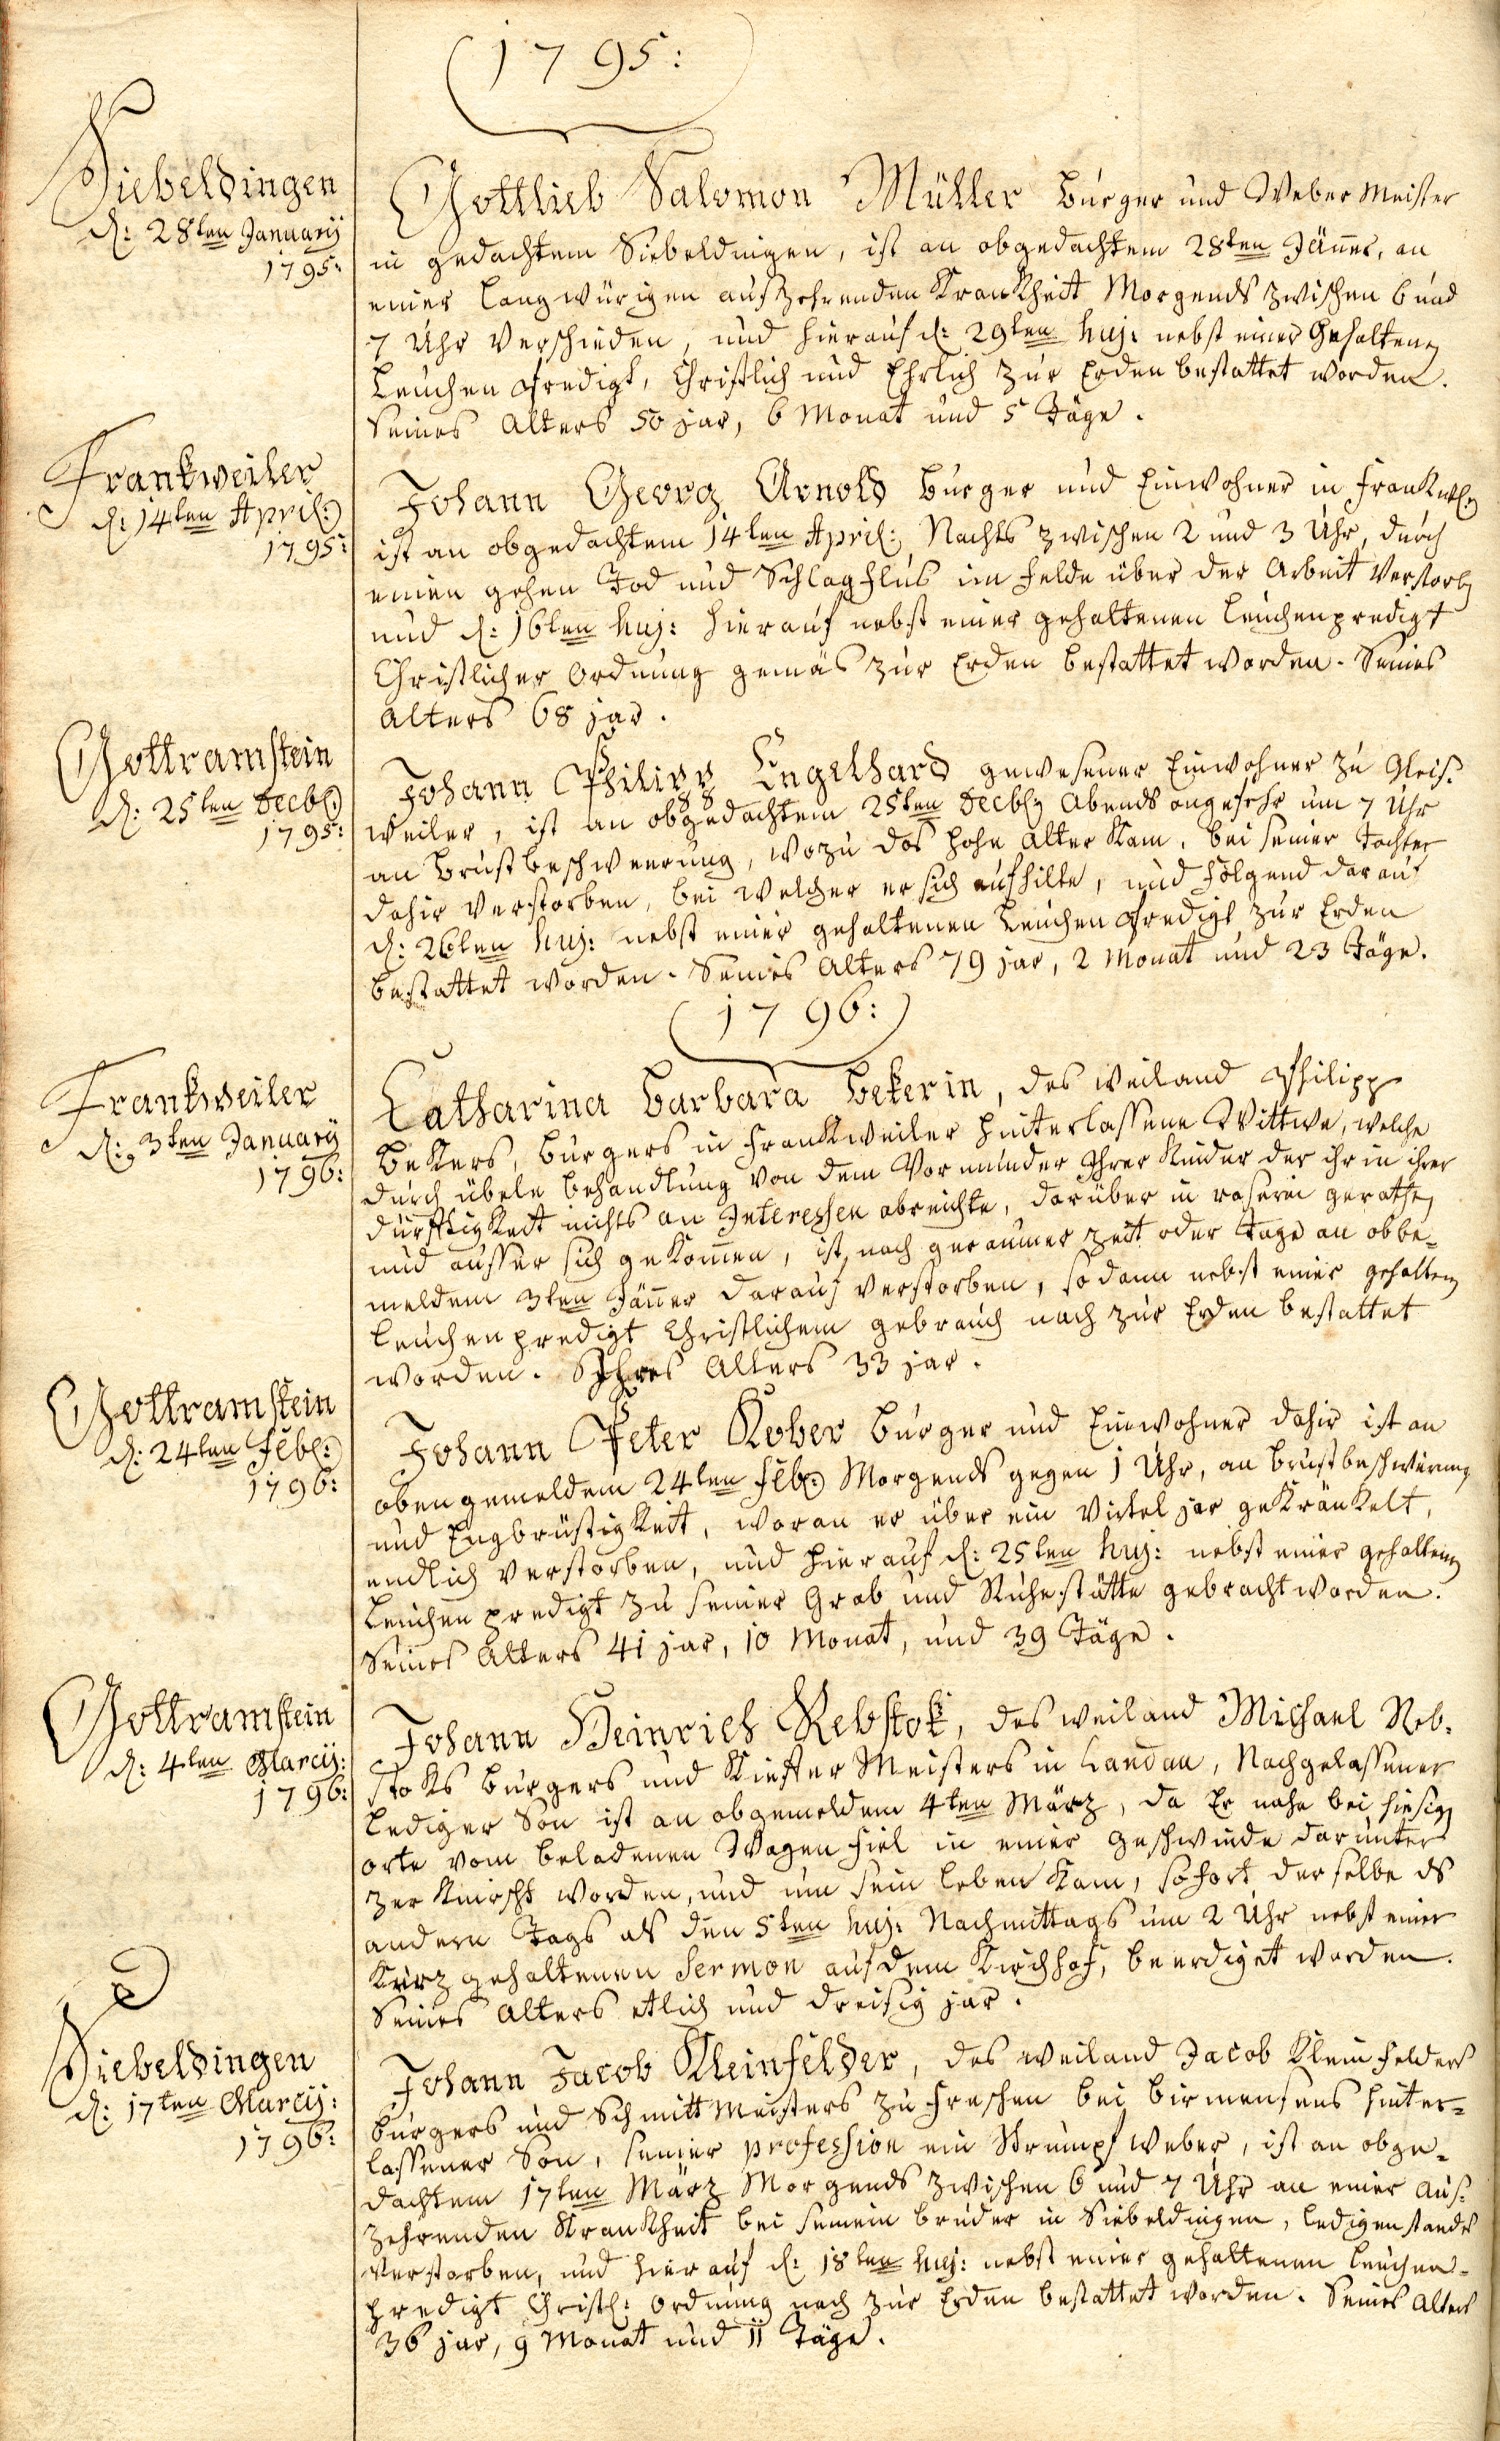 (1795:)
Siebeldingen
d: 28ten Januarij
1795:
Gottlieb Salomon Müller Burger und Weber Meister
in gedachtem Siebeldingen, ist an obgedachtem 28ten Jäner, an
einer langwürigen auszehrenden Krankheit Morgends zwischen 6 und
7 Uhr verschieden, und hierauf d: 29ten huj: nebst einer Gehaltenen
Leuchen Predigt, Christlich und Ehrlich zur Erden bestattet worden.
Seines Alters 50 jar, 6 Monat und 5 Täge.
Frankweiler
d: 14ten April:
1795:
Johann Georg Arnold Burger und Einwohner in Frankwl:
ist an obgedachtem 14ten April: Nachts zwischen 2 und 3 Uhr, durch
einen gehen Tod und Schlagflus im Felde über der Arbeit Verstorb
und d: 16ten huj: hierauf nebst einer gehaltenen Leuchenpredigt
Christlicher Ordnung gemäs zur Erden bestattet worden. Seines
Alters 68 jar.
Gottramstein
d: 25ten Decbl:
1795:
Johann Philipp Engelhard gewesener Einwohner zu Gleis:
weiler, ist an obgedachtem 25ten Decbl: Abends ongefehr um 7 Uhr
an Brustbeschweerung, wozu das hohe Alter Kam, bei seiner Tochter
dahir verstorben, bei welcher er sich aufhilte, und folgend darauf
d: 26ten huj: nebst einer gehaltenen Leuchen Predigt zur Erden
bestattet worden. Seines Alters 79 jar, 2 Monat und 23 Täge.
(1796:)
Frankweiler
d: 3ten Januarij
1796:
Catharina Barbara Bekerin, des weiland Philipp
Bekers, Burgers in Frankweiler hinterlassene Wittwe, welche
durch übele behandlung von dem Vormünder Ihrer Kinder der ihr in ihrer
dürfftigkeit nichts an Interessen abreichte, darüber in raserei gerathen
und ausser sich gekomen, ist nach geraumer zeit oder tage an obbe-
meldem 3ten Jäner darauf verstorben, so dann nebst einer gehalten
Leuchenpredigt Christlichem gebrauch nach zur Erden bestattet
worden. Ihres Alters 33 jar.
Gottramstein
d: 24ten Febl:
1796:
Johann Peter Kober Burger und Einwohner dahir ist an
obengemeldem 24ten Feb: Morgends gegen 1 Uhr, an brustbeschwerung
und Engbrüstigkeit, woran er über ein Virtel jar gekränkelt,
endlich verstorben, und hierauf d: 25ten huj: nebst einer gehaltenen
Leuchen predigt zu seiner Grab und Ruhestätte gebracht worden.
Seines Alters 41 jar, 10 Monat, und 39 Täge.
Gottramstein
d: 4ten Marcij:
1796:
Johann Heinrich Rebstok, des weiland Michael Reb-
stoks Burgers und Kieffer Meisters in Landau, Nachgelassener
Lediger Son ist an obgemeldem 4ten März, da Er nahe bei hiesigen
orte vom beladenen Wagen fiel in einer geschwinde darunter
zerknirscht worden, und um sein leben kam, sofort derselbe ds
andern Tags als den 5ten huj: Nachmittags um 2 Uhr nebst einer
Kurz gehaltenen Sermon auf dem Kirchhof, beerdiget worden.
Seines Alters etlich und dreisig jar.
Siebeldingen
d: 17ten Marcij:
1796:
Johann Jacob Kleinfelder, des weiland Jacob Kleinfelders
burgers und Schmitt Meisters zu Freschen bei birmensens hinter-
lassener Son, seiner profession ein Strumpf weber, ist an obge-
dachtem 17ten März Morgends zwischen 6 und 7 Uhr an einer aus-
zehrenden Krankheit bei seinem bruder in Siebeldingen, ledigen standes
verstorben, und hierauf d: 18ten huj: nebst einer gehaltenen Leuchen-
predigt Christl: Ordnung nach zur Erden bestattet worden. Seines Alters
36 jar, 9 Monat und 11 Täge.